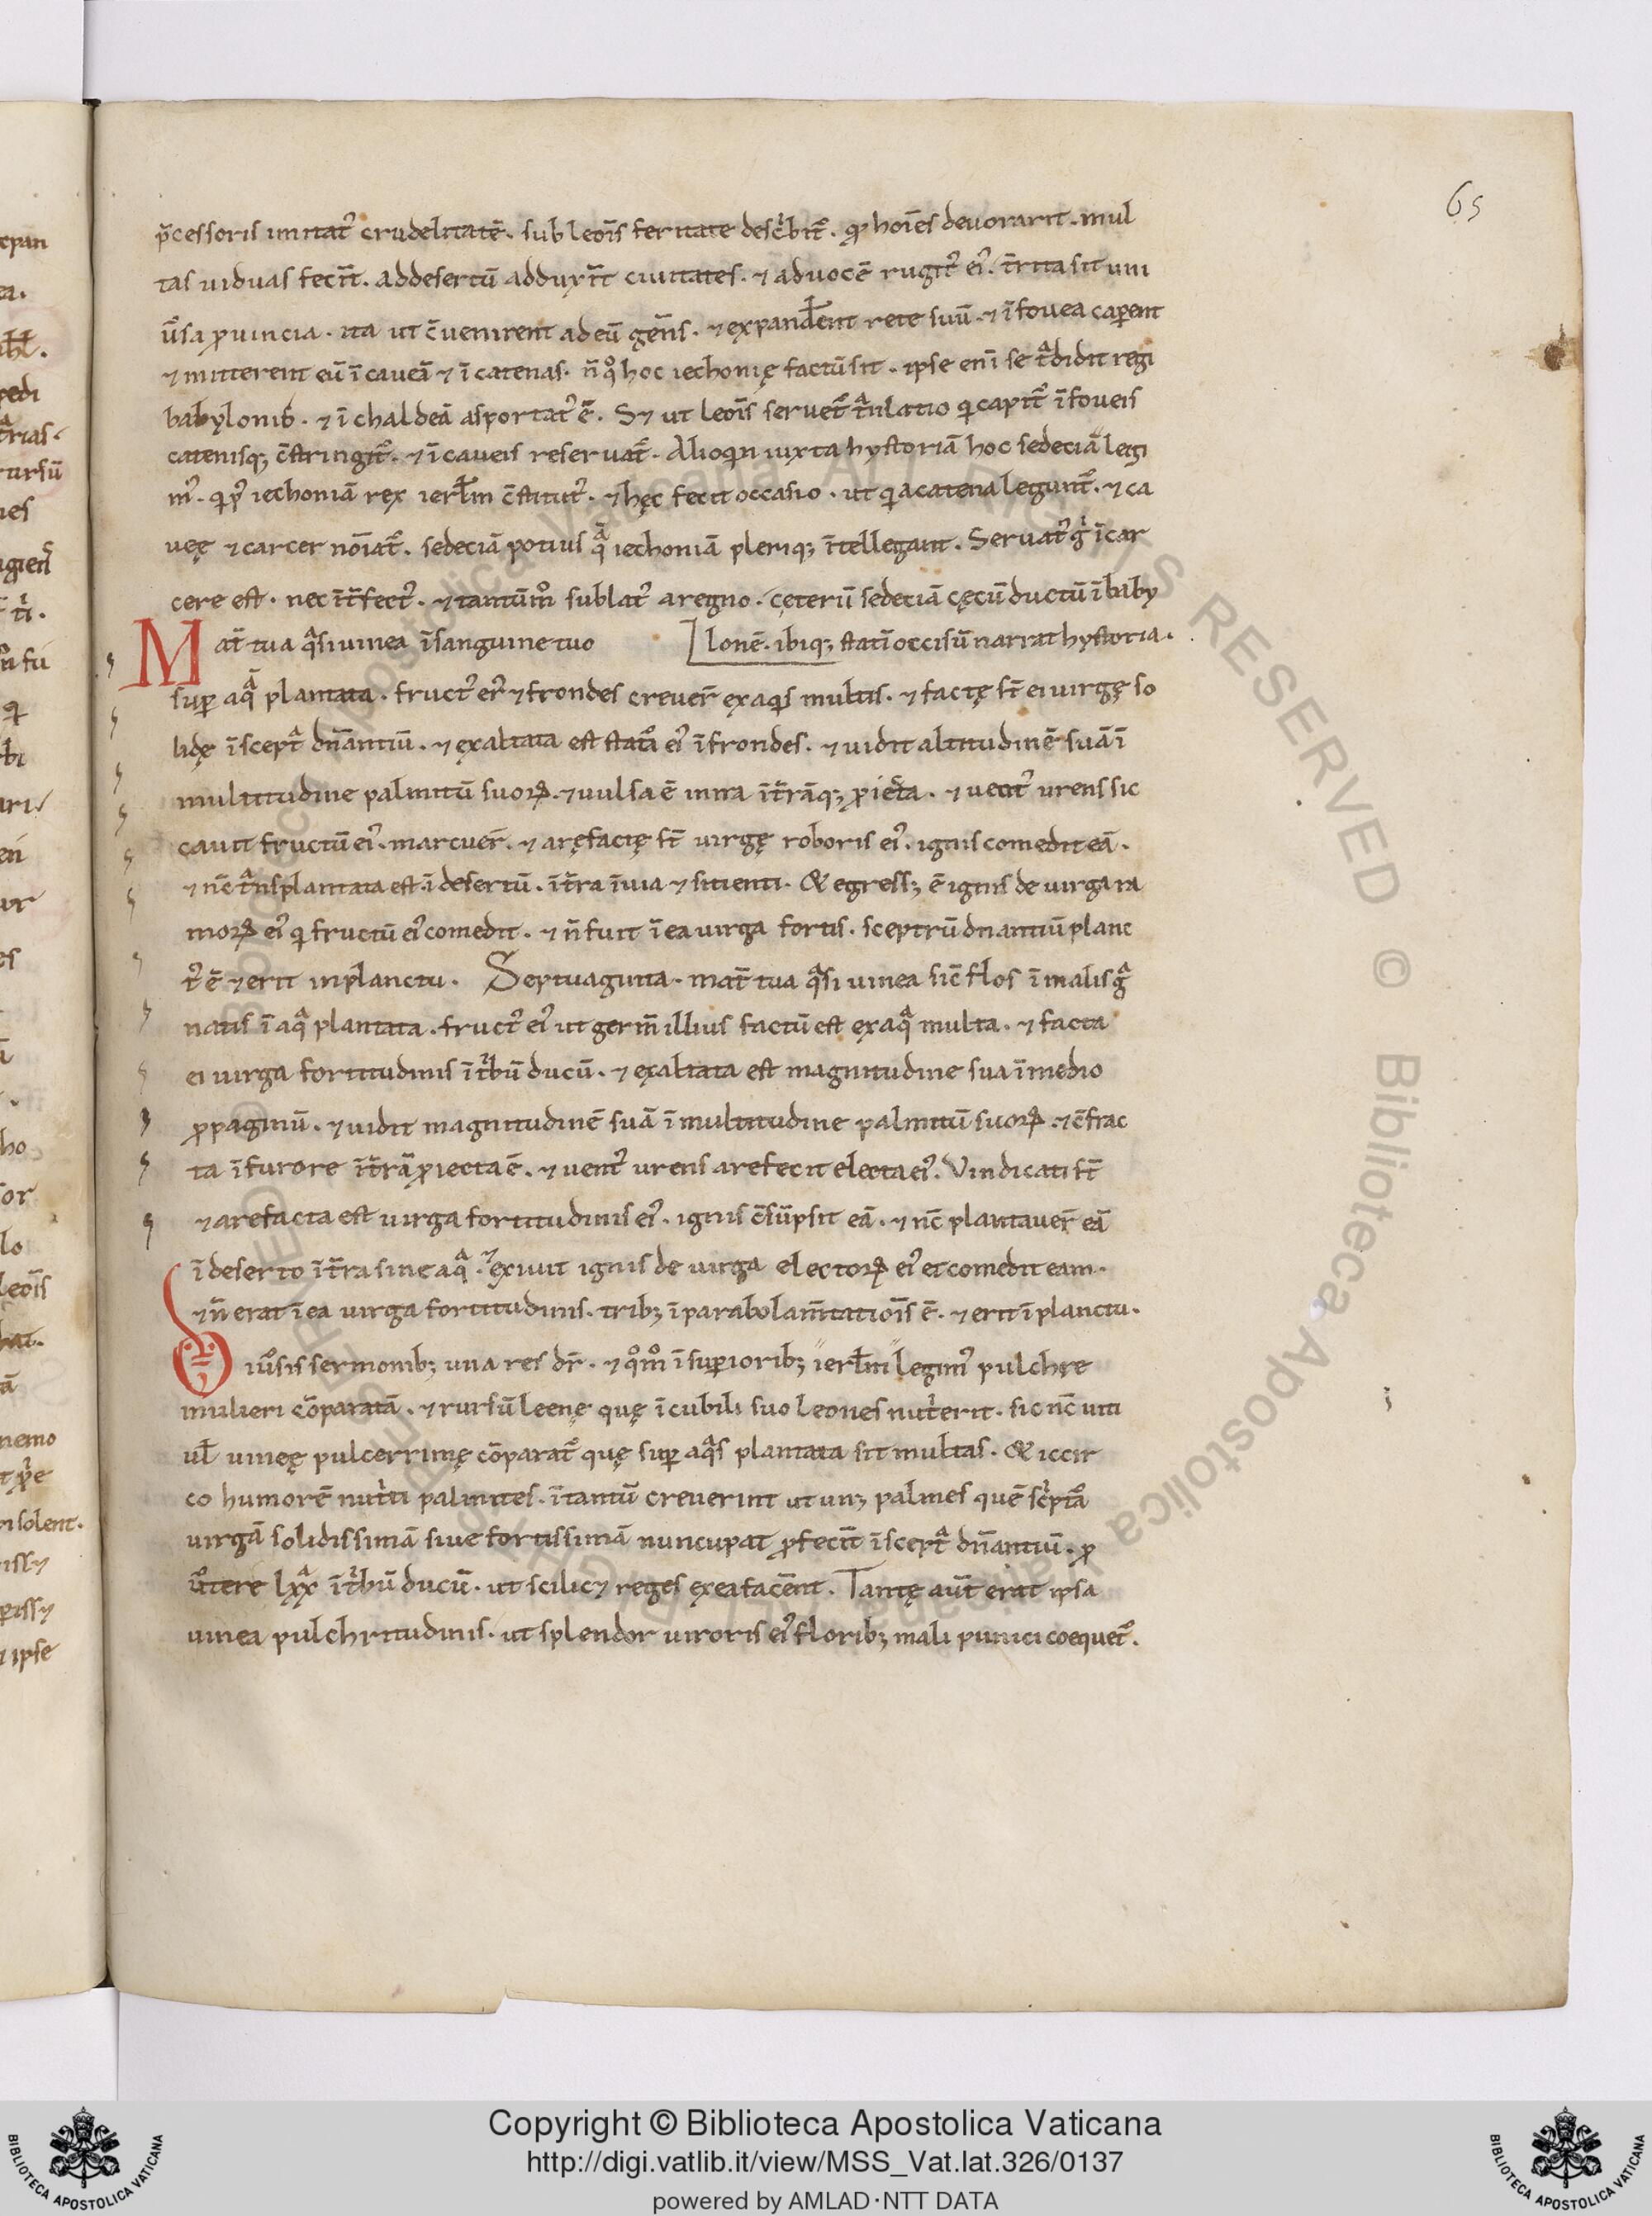 65
p̄cessoris imitat᾽ crudelitatē. sub leoīs feritate descͥbit᷑. qͥ hoīes deuorarit. mul
tas uiduas fecīt. ad desertū adduxīt ciuitates. ⁊ ad uocē rugit᾽ ei᾽. t̄rita sit uni
ūsa ꝓuincia. ita ut c̄uenirent ad eū gen̄s. ⁊ expand̄ent rete suū ⁊ ī fouea caꝑent
⁊ mitterent eū ī caueā ⁊ ī catenas. n̄ qͦ hoc iechonię factū sit. ipse enī se tͣdidit regi
babylonis. ⁊ ī chaldeā asportat᾽ ē. S⁊ ut leoīs seruet᷑ tͣnslatio qͥ capit᷑ ī foueis
catenisq; c̄stringit᷑. ⁊ ī caueis reseruat᷑. Alioqͥn iuxta hystoriā hoc sedeciā legi
m᾽. qͥ p᾽ iechoniā rex ierl̄m c̄stitut᾽. ⁊ hęc fecit occasio. ut qͥa catena legunt᷑. ⁊ ca
uęę ⁊ carcer noīat᷑. sedeciā potius qͣ̄ iechoniā pleriq; ītellegant. Seruat᾽ gͥ ī car
cere est. nec īt̄fect᾽. ⁊ tantūm̊ sublat᾽ a regno. cęterū sedeciā cęcū ductū ī baby
Mat̄ tua qͣsi uinea ī sanguine tuo lonē. ibiq; statī occisū narrat hystoria.
suꝑ aqͣ̄ plantata. fruct᾽ ei᾽ ⁊ frondes creuer̄ ex aqͥs multis. ⁊ factę st̄ ei uirgę so
lidę ī sceptͣ dn̄antiū. ⁊ exaltata est statͣ ei᾽ ī frondes. ⁊ uidit altitudinē suā ī
multitudine palmitū suoꝝ. ⁊ uulsa ē in ira ī t̄rāq; ꝓiecta. ⁊ uent᾽ urens sic
cauit fructū ei᾽. marcuer̄. ⁊ aręfactę st̄ uirgę roboris ei᾽. ignis comedit eā.
⁊ nc̄ tͣnsplantata est ī desertū. ī t̄ra īuia ⁊ sitienti. & egress; ē ignis de uirga ra
moꝝ ei᾽ qͥ fructū ei᾽ comedit. ⁊ n̄ fuit ī ea uirga fortis. sceptrū dnantiū planc
t᾽ ē ⁊ erit in planctu. Septuaginta. mat̄ tua qͣsi uinea sic̄ flos ī malis gͣ
natis ī aqͣ plantata. fruct᾽ ei᾽ ut germ̄ illius factū est ex aqͣ multa. ⁊ facta
ei uirga fortitudinis ī tͥbū ducū. ⁊ exaltata est magnitudine sua ī medio
ꝓpaginū. ⁊ uidit magnitudinē suā ī multitudine palmitū suoꝝ. ⁊ c̄frac
ta ī furore ī t̄rā ꝓiecta ē. ⁊ uent᾽ urens arefecit electa ei᾽. Vindicati st̄
⁊ arefacta est uirga fortitudinis ei᾽. ignis c̄sūpsit eā. ⁊ nc̄ plantauer̄ eā
ī deserto ī t̄ra sine aqͣ. ⁊ exiuit ignis de uirga electoꝝ ei᾽ et comedit eam.
⁊ n̄ erat ī ea uirga fortitudinis. trib; ī parabolam̄tatiōis ē. ⁊ erit ī planctu.
Diūsis sermonib; una res dr̄. ⁊ qͦm̊ ī suꝑiorib; ierl̄m legim᾽ pulchre
mulieri cōparatā. ⁊ rursū leenę quę ī cubili suo leones nutͥerit. sic nc̄ uiti
ul̄ uineę pulcerrimę cōparat᷑ quę suꝑ aqͣs plantata sit multas. & iccir
co humorē nutͥti palmites. ī tantū creuerint ut un; palmes quē scͥptͣ̄
uirgā solidissimā siue fortissimā nuncupat ꝓfecīt ī sceptͣ dn̄antiū. ꝓ
ūtere lxͣx ī tͥbū ducū. ut scilic⁊ reges ex ea fac̄ent. Tantę aūt erat ipsa
uinea pulchritudinis. ut splendor uiroris ei᾽ florib; mali punici coequet᷑.
Copyright © Biblioteca Apostolica Vaticana
http://digi.vatlib.it/view/MSS_Vat.lat.326/0137
powered by AMLAD·NTT DATA
BIBLIOTECA APOSTOLICA VATICANA
BIBLIOTECA APOSTOLICA VATICANA